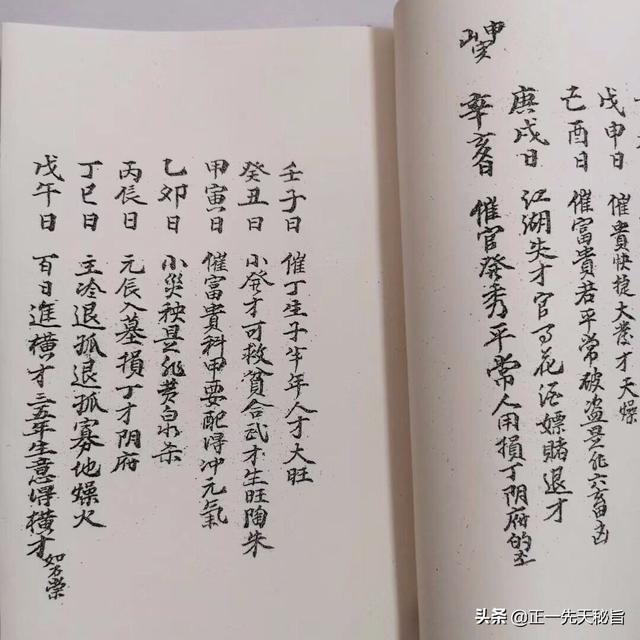 申山
戊申日 催貴快捷大发才天燥
己酉日 催富貴若平常破盗畜凶
庚戌日 江湖失才官花酒嫖赌退才
辛亥日 催官發秀平常人用損丁阴府的
壬子日 催丁生子半年人才大旺
癸丑日 小發才可救貧合武才生旺陶朱
甲寅日 催富貴科甲要配得冲元氣
乙卯日 小災秧黄白
丙辰日 元辰入墓損丁才阴府
丁巳日 主冷退孤退孤寡地燥火
戊午日 百日進横才三五年生意得横才
头条 @正一先天秘旨